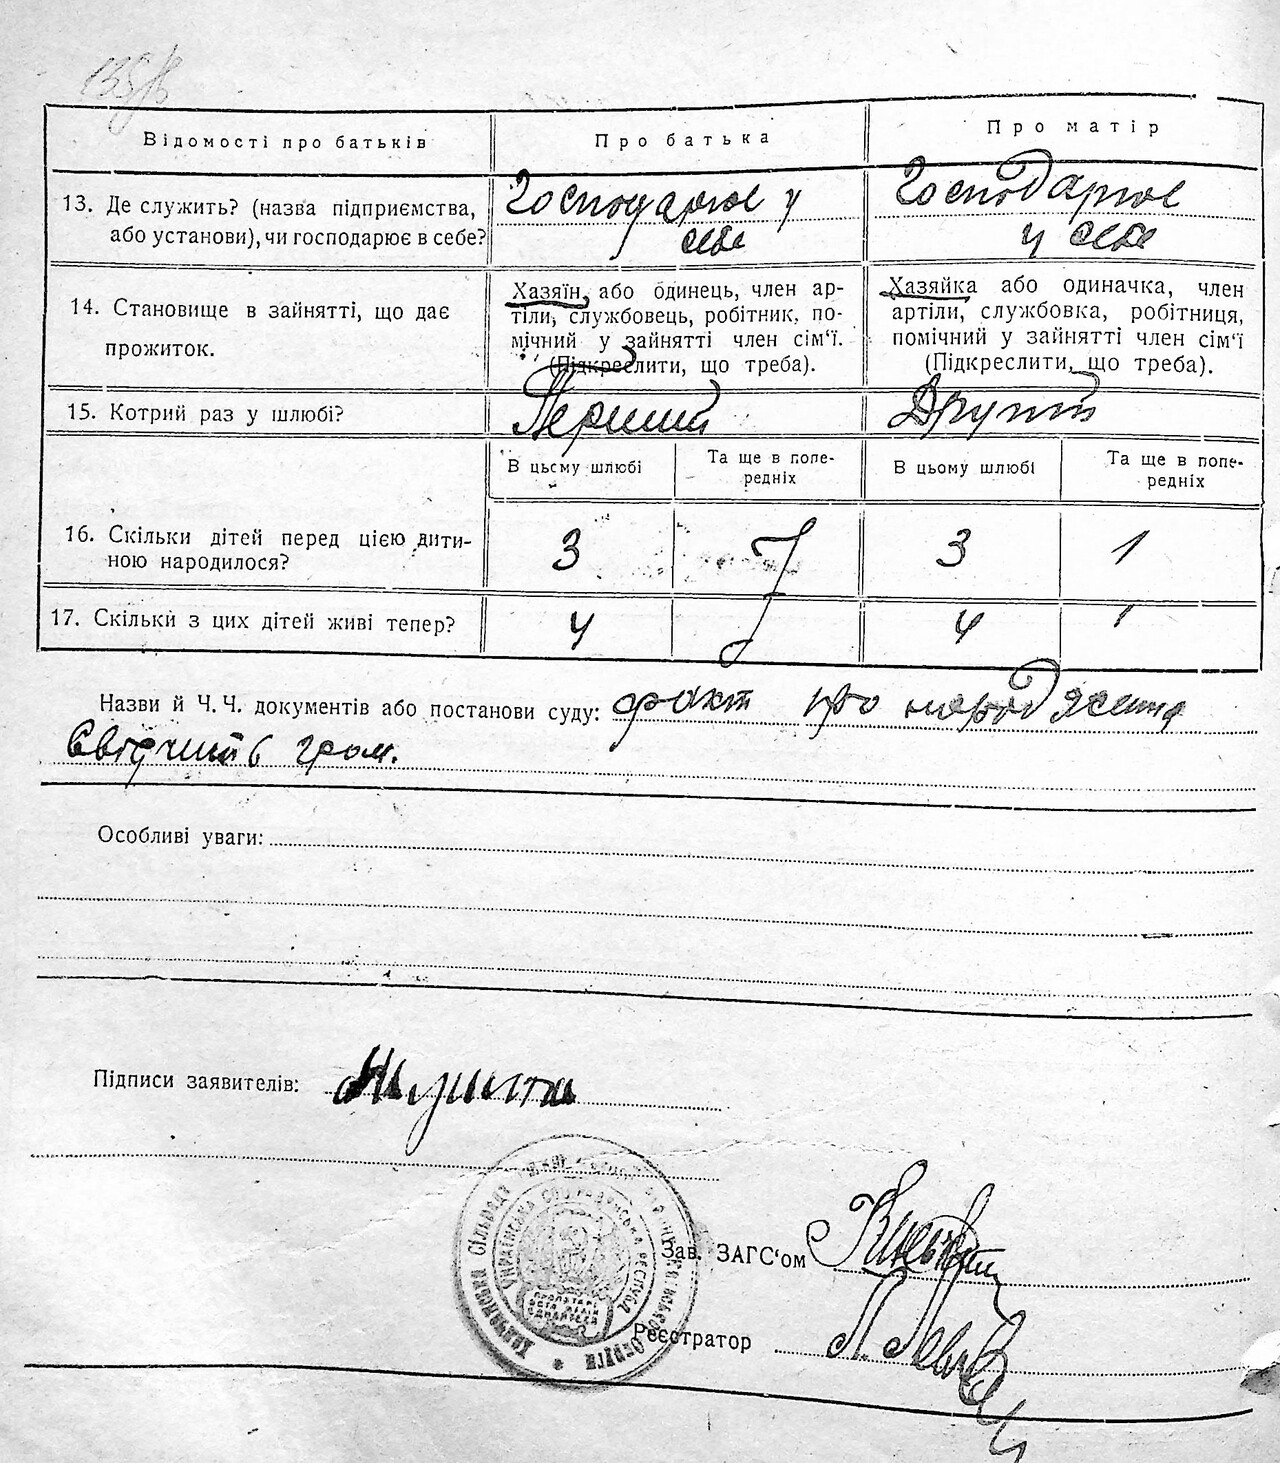 135/в
Відомості про батьків
Про батька
Про матір
13. Де служить? (назва підприємства,
або установи), чи господарює в себе?
Господарює у
себе
Господарює
у себе
14. Становище в зайнятті, що дає
прожиток.
Хазяїн, або одинець, член ар-
тілі, службовець, робітник, по-
мічний у зайнятті член сім'ї.
(Підкреслити, що треба).
Хазяйка або одиначка, член
артілі, службовка, робітниця,
помічний у зайнятті член сім'ї
(Підкреслити, що треба).
15. Котрий раз у шлюбі?
Перший
Другий
В цьому шлюбі
Та ще в попе-
редніх
В цьому шлюбі
Та ще в попе-
редніх
16. Скільки дітей перед цією дити-
ною народилося?
3
3
1
17. Скільки з цих дітей живі тепер?
4
4
1
Назви й Ч. Ч. документів або постанови суду: факт про народження
Свідчить гром.
Особливі уваги:
Підписи заявителів:
УКРАЇНСЬКА СОЦ. РАДЯНСЬКА РЕСПУБ.
ПРОЛЕТАРІ
ВСІХ КРАЇН
ЄДНАЙТЕСЯ
Зав. ЗАГС'ом
Реєстратор